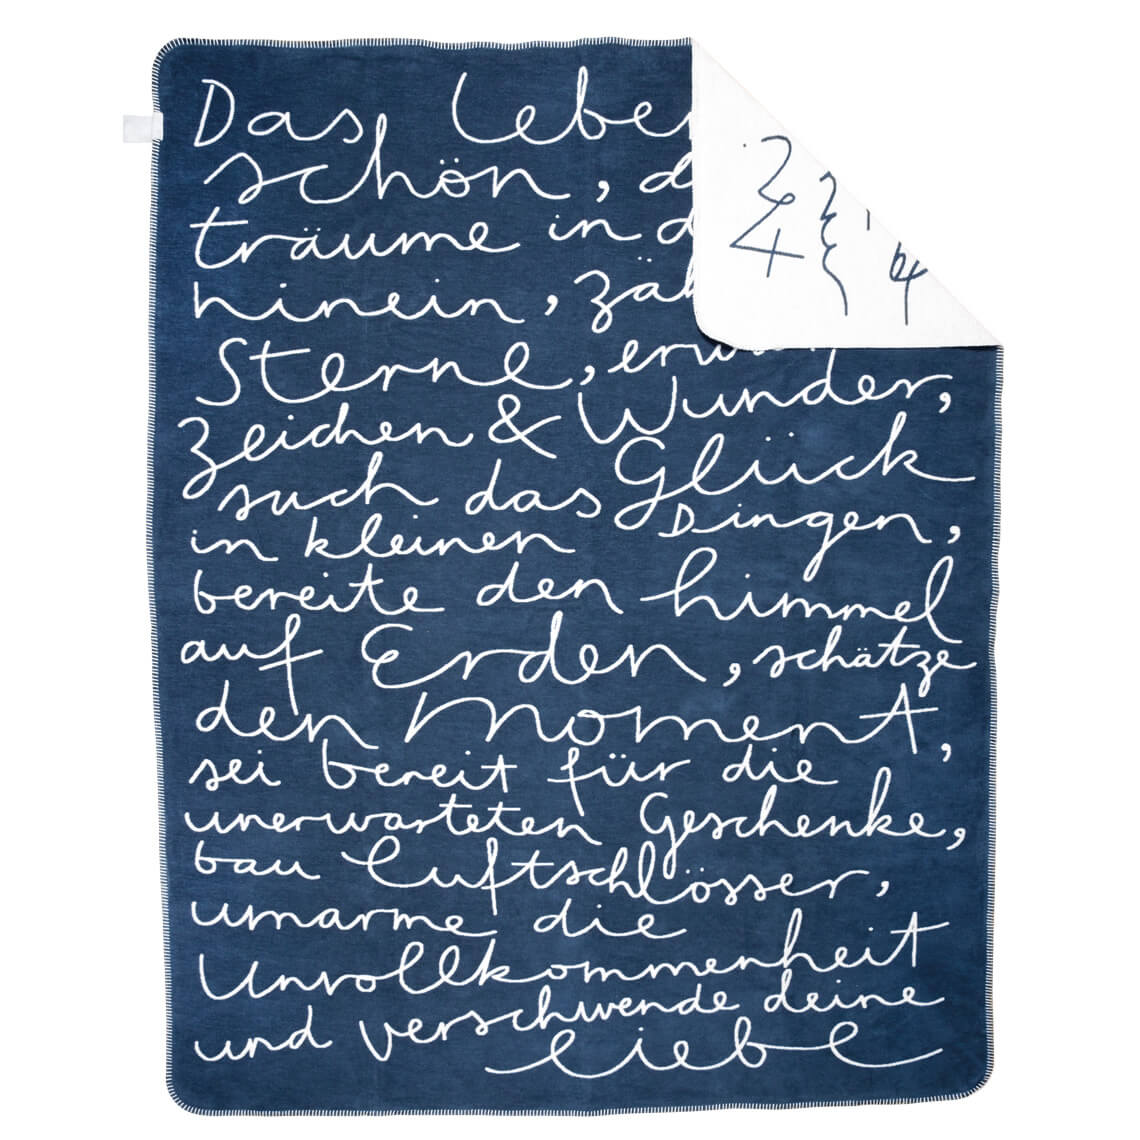 Das Lebe
schön, d
träume in d
hinein, zäh
Sterne, erw
Zeichen & Wunder,
such das Glück
in kleinen Dingen,
bereite den Himmel
auf Erden, schätze
den Moment,
sei bereit für die
unerwarteten Geschenke,
bau Luftschlösser,
umarme die
Unvollkommenheit
und verschwende deine
Liebe